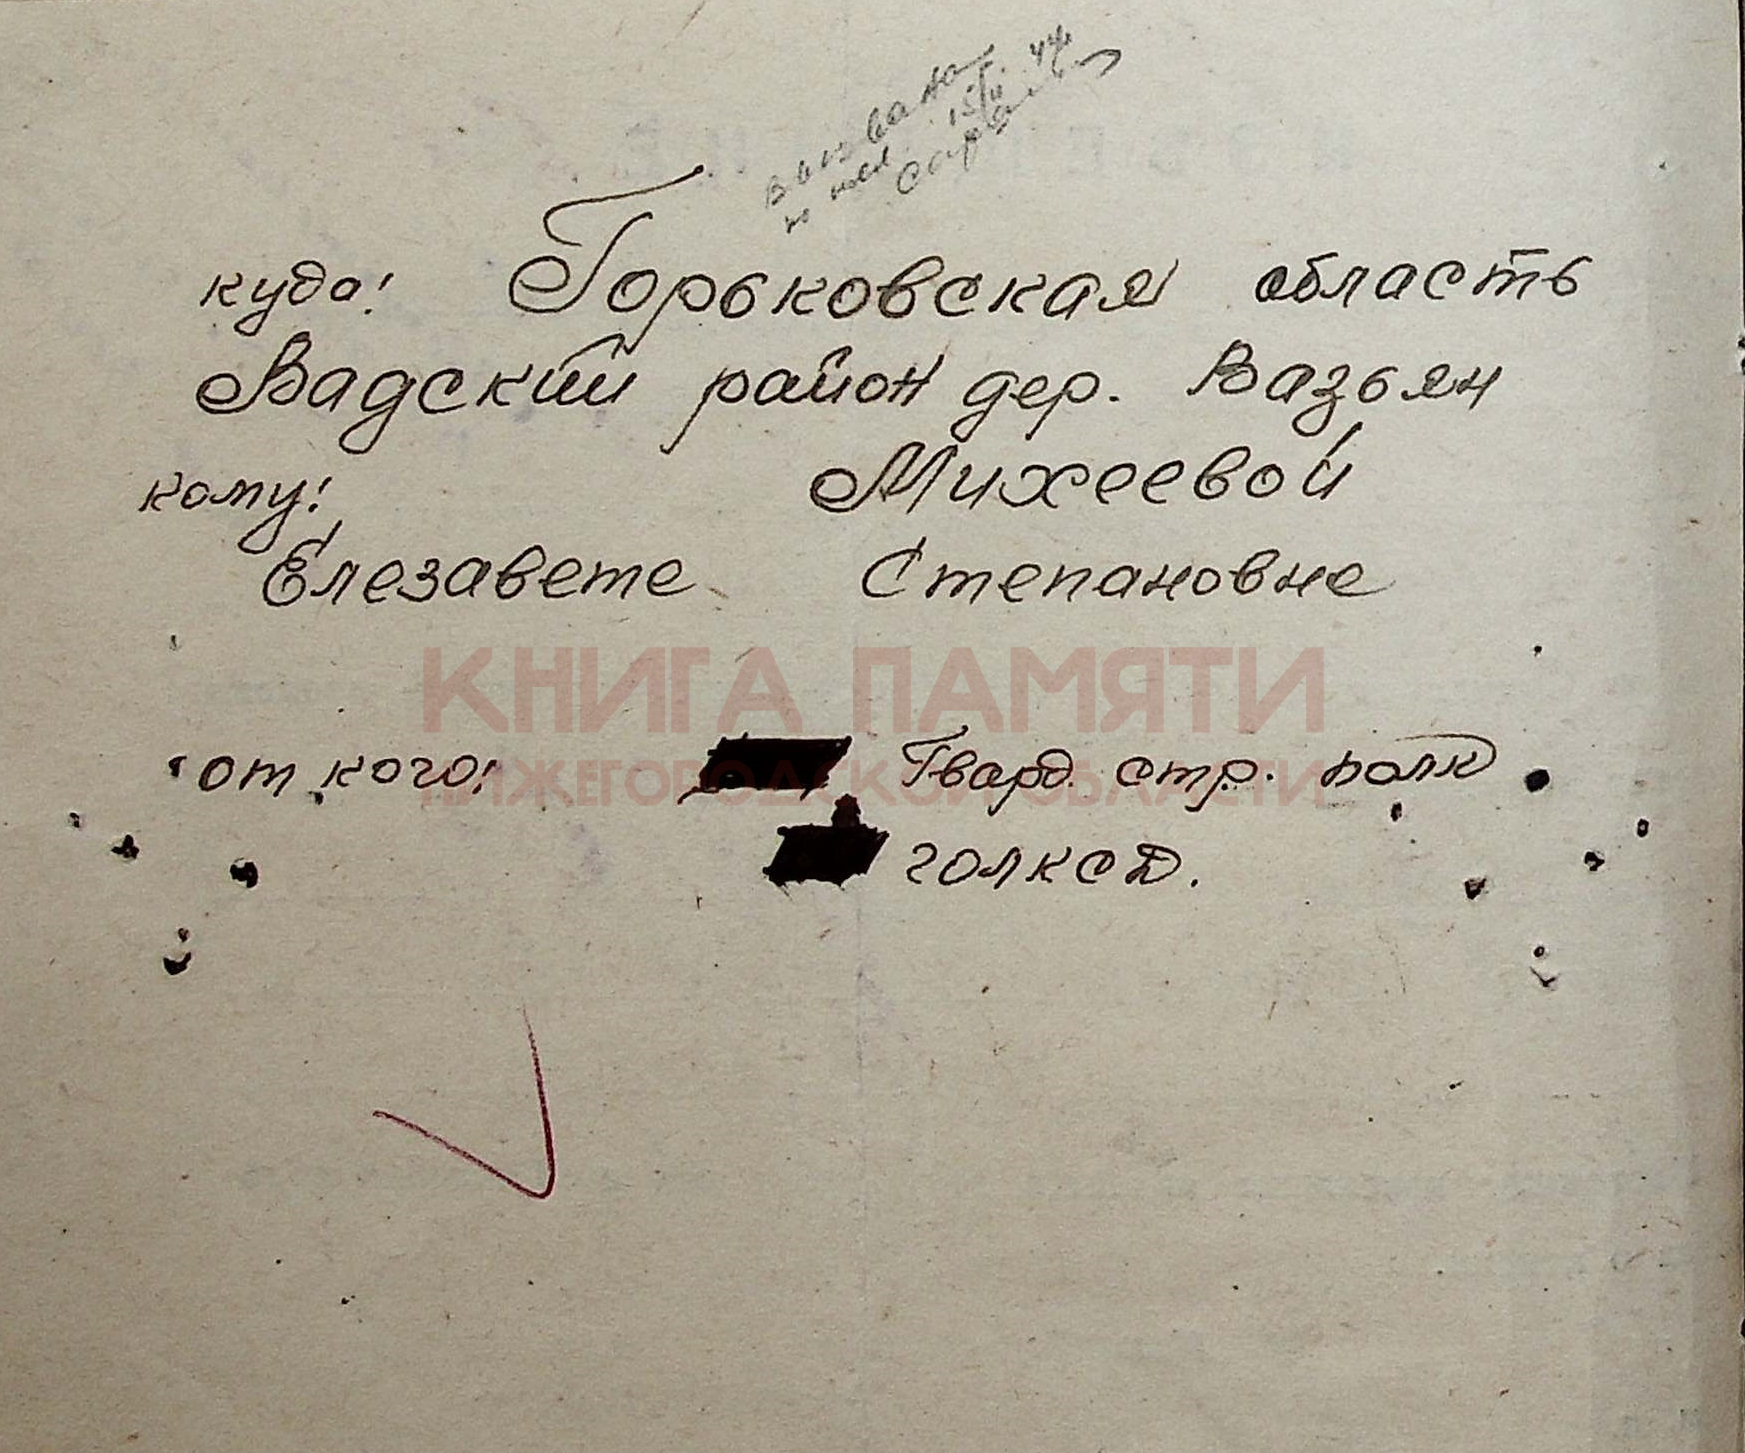 вызвана
на 15/II. 44
куда! Горьковская область
Вадский район дер. Вазьян
кому! Михеевой
Елезавете Степановне
КНИГА ПАМЯТИ
НИЖЕГОРОДСКОЙ ОБЛАСТИ
от кого: Гвард. стр. полк
голксд.